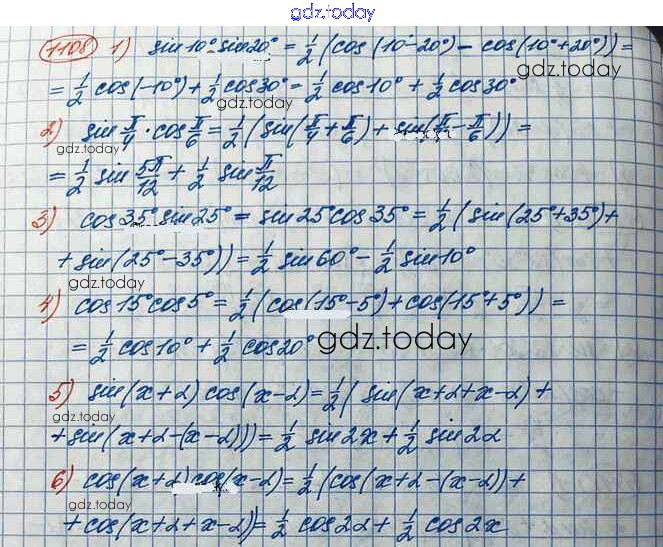 gdz.today
1108 1) sin10°·sin20° = 1/2 (cos(10°-20°) - cos(10°+20°)) =
= 1/2 cos(-10°) + 1/2 cos30° = 1/2 cos10° + 1/2 cos30°
gdz.today
gdz.today
2) sin π/4 · cos π/6 = 1/2 (sin(π/4 + π/6) + sin(π/4 - π/6)) =
gdz.today
= 1/2 sin 5π/12 + 1/2 sin π/12
3) cos35° sin25° = sin25° cos35° = 1/2 (sin(25°+35°) +
+ sin(25°-35°)) = 1/2 sin60° - 1/2 sin10°
gdz.today
4) cos15° cos5° = 1/2 (cos(15°-5°) + cos(15°+5°)) =
= 1/2 cos10° + 1/2 cos20°
gdz.today
5) sin(x+α) cos(x-α) = 1/2 (sin(x+α+x-α) +
gdz.today
+ sin(x+α-(x-α))) = 1/2 sin2x + 1/2 sin2α
6) cos(x+α) cos(x-α) = 1/2 (cos(x+α-(x-α)) +
gdz.today
+ cos(x+α+x-α)) = 1/2 cos2α + 1/2 cos2x